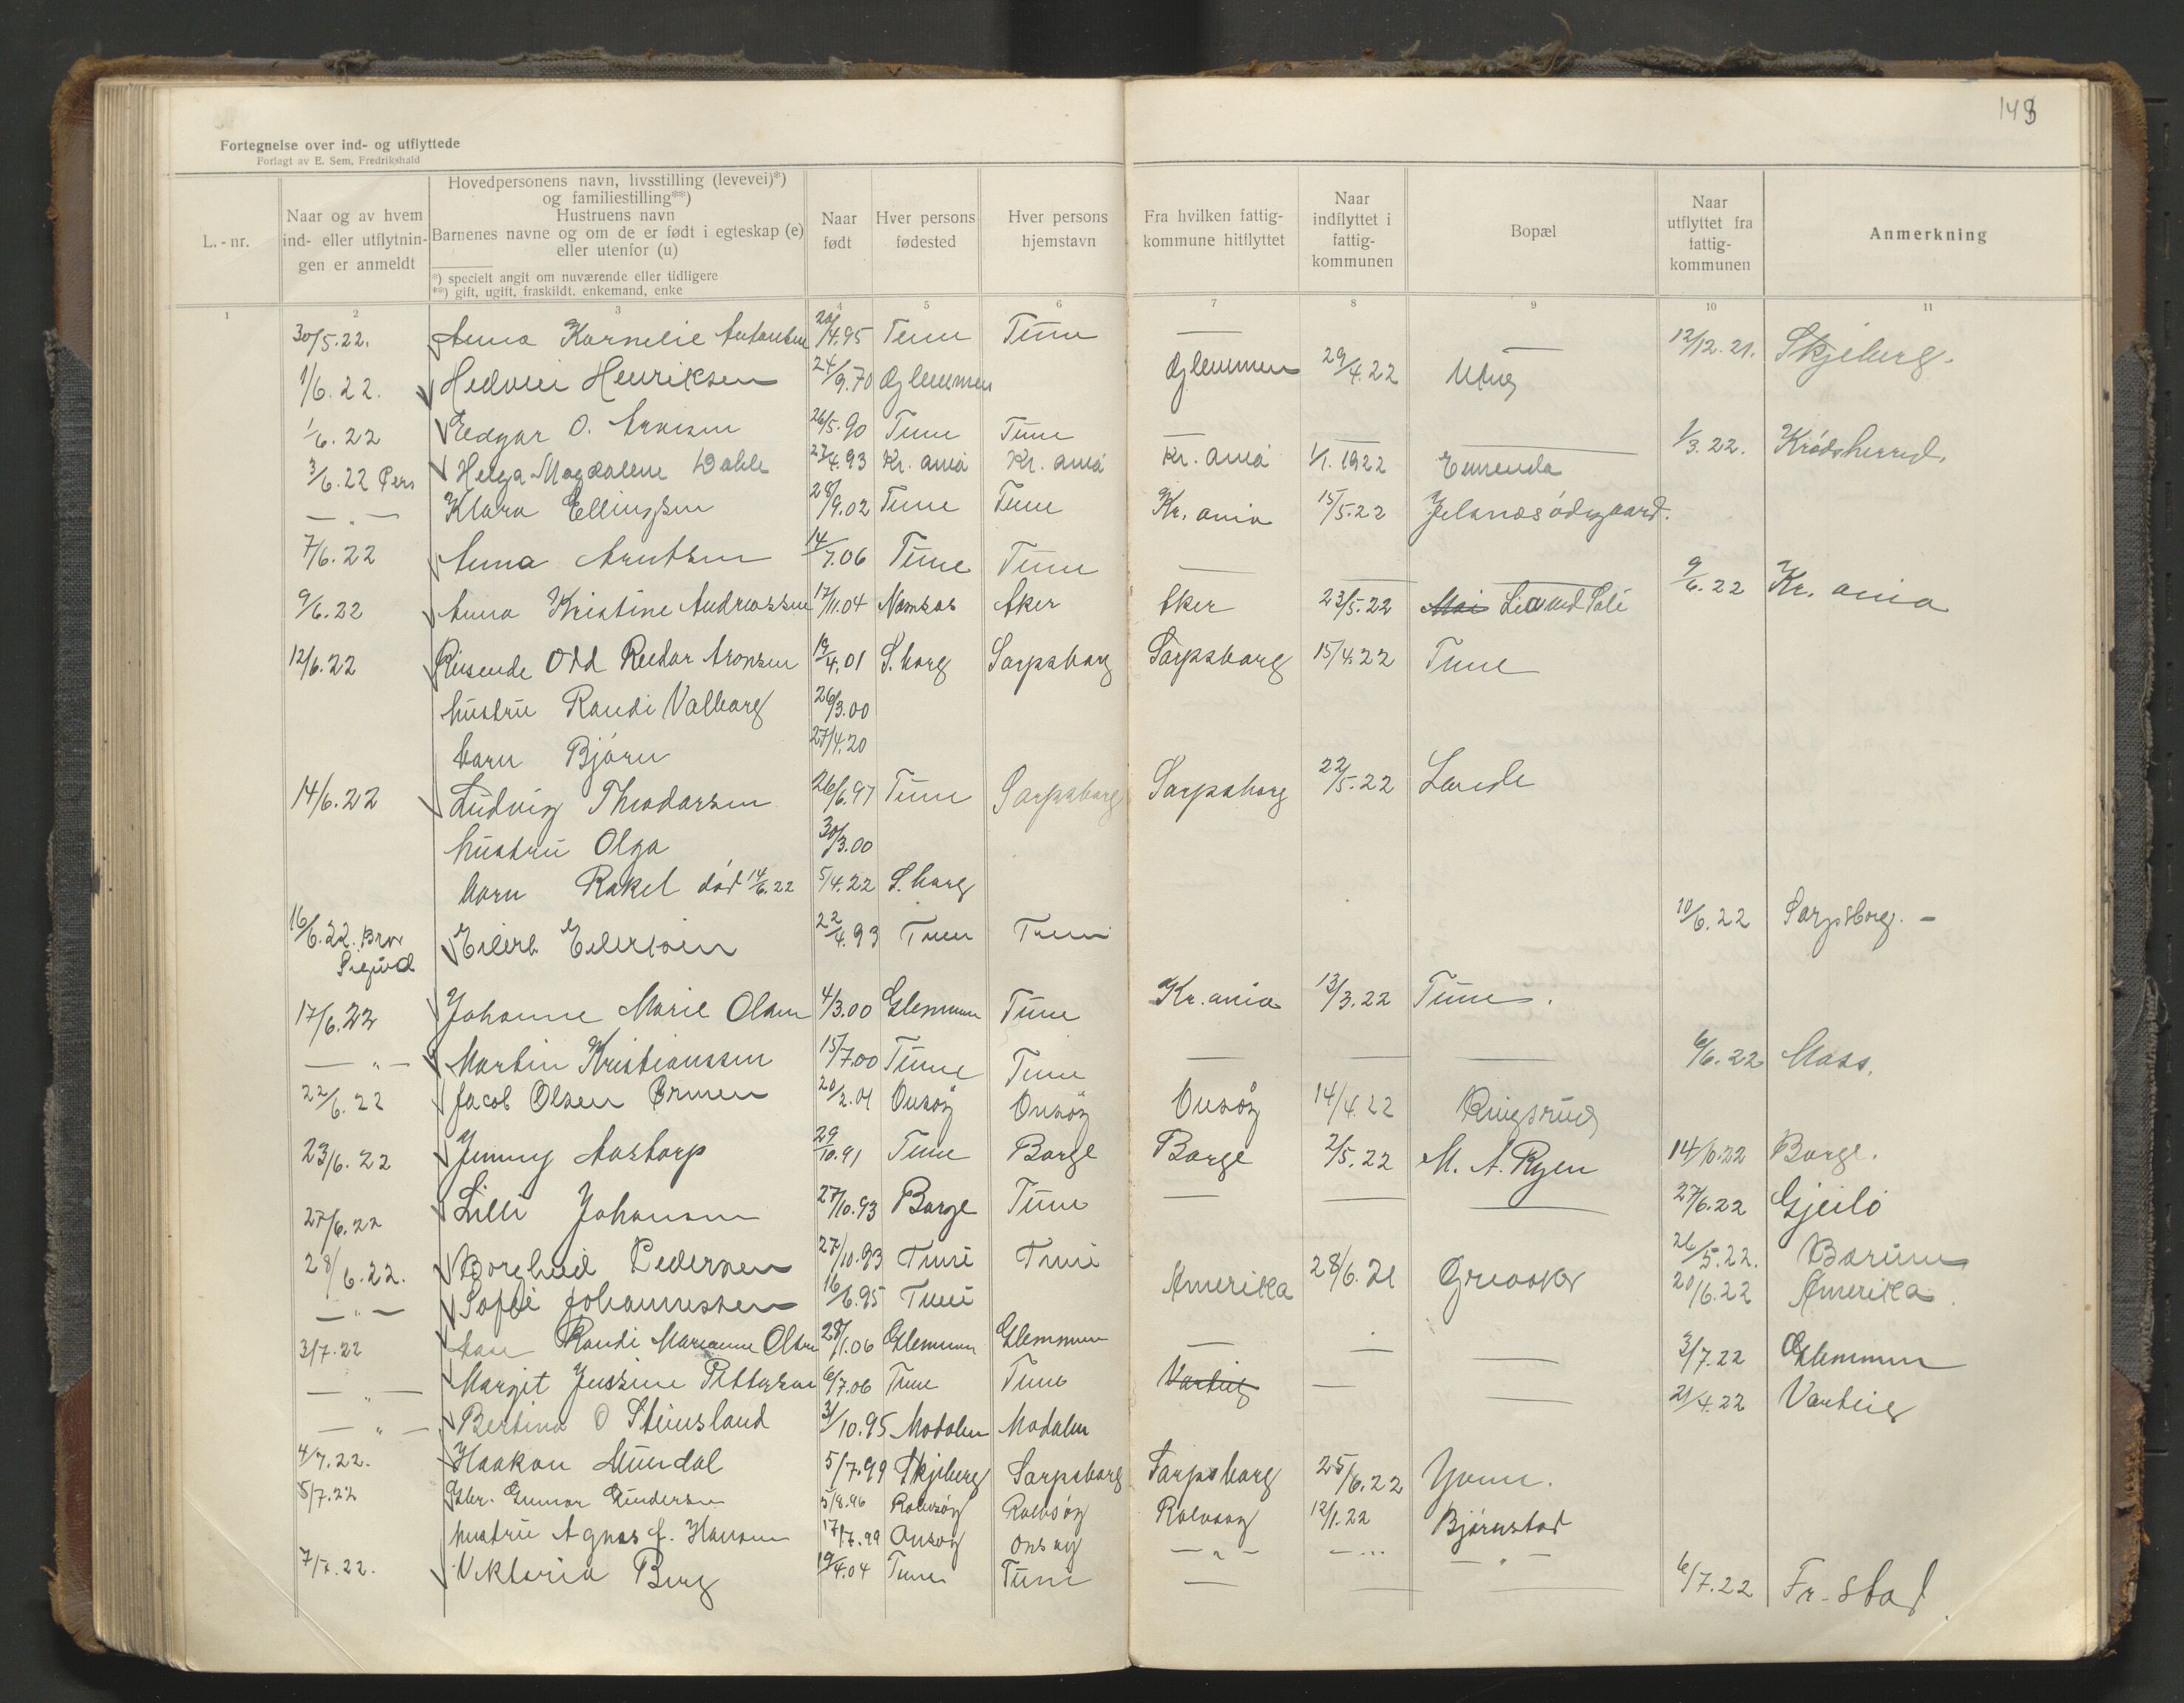 148
Fortegnelse over ind- og utflyttede
Forlagt av E. Sem, Fredrikshald
L.-nr.
Naar og av hvem ind- eller utflytnin- gen er anmeldt
Hovedpersonens navn, livsstilling (levevei)*) og familiestilling**) Hustruens navn Barnenes navne og om de er født i egteskap (e) eller utenfor (u)
*) specielt angit om nuværende eller tidligere
**) gift, ugift, fraskildt, enkemand, enke
Naar født
Hver persons fødested
Hver persons hjemstavn
Fra hvilken fattig- kommune hitflyttet
Naar indflyttet i fattig- kommunen
Bopæl
Naar utflyttet fra fattig- kommunen
Anmerkning
1 2 3 4 5 6 7 8 9 10 11
30/5.22. Anna Kornelie Antonsen 20/4.95 Tune Tune — — 12/12.21. Skjeberg.
1/6.22. Henriksen 24/9.70 Glemmen Glemmen 29/4.22
1/6.22 Edgar O. Arnesen 26/5.90 Tune Tune — — — 1/3.22. Krødsherred.
3/6.22 Pers Helga Magdalene Dahle 27/4.93 Kr. ania Kr. ania Kr. ania 1/1.1922 Enenda
— „ — Klara Ellingsen 28/9.02 Tune Tune Kr. ania 15/5.22 Jelsnesødegaard.
7/6.22 Anna Arntsen 14/7.06 Tune Tune — — — 9/6.22 Kr. ania
9/6.22 Anna Kristine Andreassen 17/11.04 Namsos Aker Aker 23/5.22
12/6.22 Reisende Odd Reidar Aronsen 19/4.01 S.borg Sarpsborg Sarpsborg 15/4.22 Tune
hustru Randi Valborg 26/3.00
barn Bjørn 27/4.20
14/6.22 Ludvig Theodorsen 26/6.97 Tune Sarpsborg Sarpsborg 22/5.22 Lande
hustru Olga 30/3.00
barn Rakel død 14/6.22 5/4.22 S.borg
16/6.22. Bror Sigurd Eilert Eilertsen 22/4.93 Tune Tune 10/6.22 Sarpsborg. —
17/6.22 Johanne Marie Olsen 4/3.00 Glemmen Tune Kr. ania 13/3.22 Tune.
— „ — Martin Kristianssen 15/7.00 Tune Tune — — — 6/6.22 Moss.
22/6.22 Jacob Olsen Ørmen 20/2.01 Onsøy Onsøy Onsøy 14/4.22 Ringsrud
23/6.22 Jenny Aastorp 29/10.91 Tune Borge Borge 2/5.22 M. A. Ryen 14/6.22 Borge.
27/6.22 Lilli Johansen 27/10.93 Borge Tune — — — 27/6.22 Gjeilo
28/6.22. Borghild Pedersen 27/10.93 Tune Tune 26/5.22. Bærum
— „ — Sofie Johannessen 16/6.95 Tune Amerika 28/6.21 Greaaker 20/6.22 Amerika.
3/7.22 Aase Randi Marianne Olsen 28/1.06 Glemmen Glemmen — — — 3/7.22 Glemmen
— „ — Margit Jussine Pettersen 6/7.06 Tune Tune Varteig — — 21/4.22 Varteig
— „ — Bertina O Steinsland 31/10.95 Modalen Modalen
4/7.22. Haakon Mürdal 5/7.99 Skjeberg Sarpsborg Sarpsborg 25/6.22 Yven.
5/7.22 Gunnar Gundersen 5/8.96 Rolvsøy Rolvsøy Rolvsøy 12/1.22 Bjørnstad
hustru Agnes f. Hansen 17/7.99 Onsøy Onsøy — „ — — „ — — „ —
7/7.22. Viktoria Berg 19/4.04 Tune Tune — — — 6/7.22 Fr.stad.